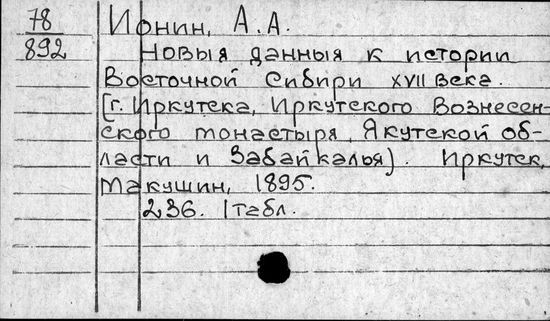 78
892
Ионин, А.А.
Новыя данныя к истории
Восточной Сибири XVII века.
(г. Иркутска, Иркутского Вознесен-
ского монастыря, Якутской об-
ласти и Забайкалья). Иркутск,
Макушин, 1895.
236. 1 табл.